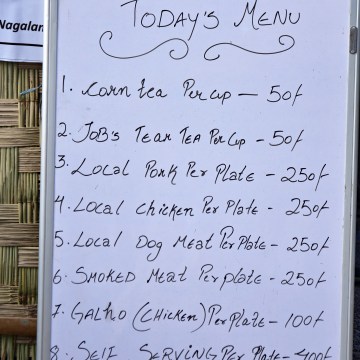 Nagalan
TODAY'S MENU
1. Corn tea Per cup — 50/-
2. JOB'S TEAR TEA Per Cup - 50/-
3. Local Pork Per Plate - 250/-
4. Local chicken Per Plate - 250/-
5. Local Dog Meat Per Plate - 250/-
6. SMOKED MEAT Per plate - 250/-
7. GALHO (CHICKEN) Per Plate - 100/-
8. SELF SERVING Per Plate - 400/-